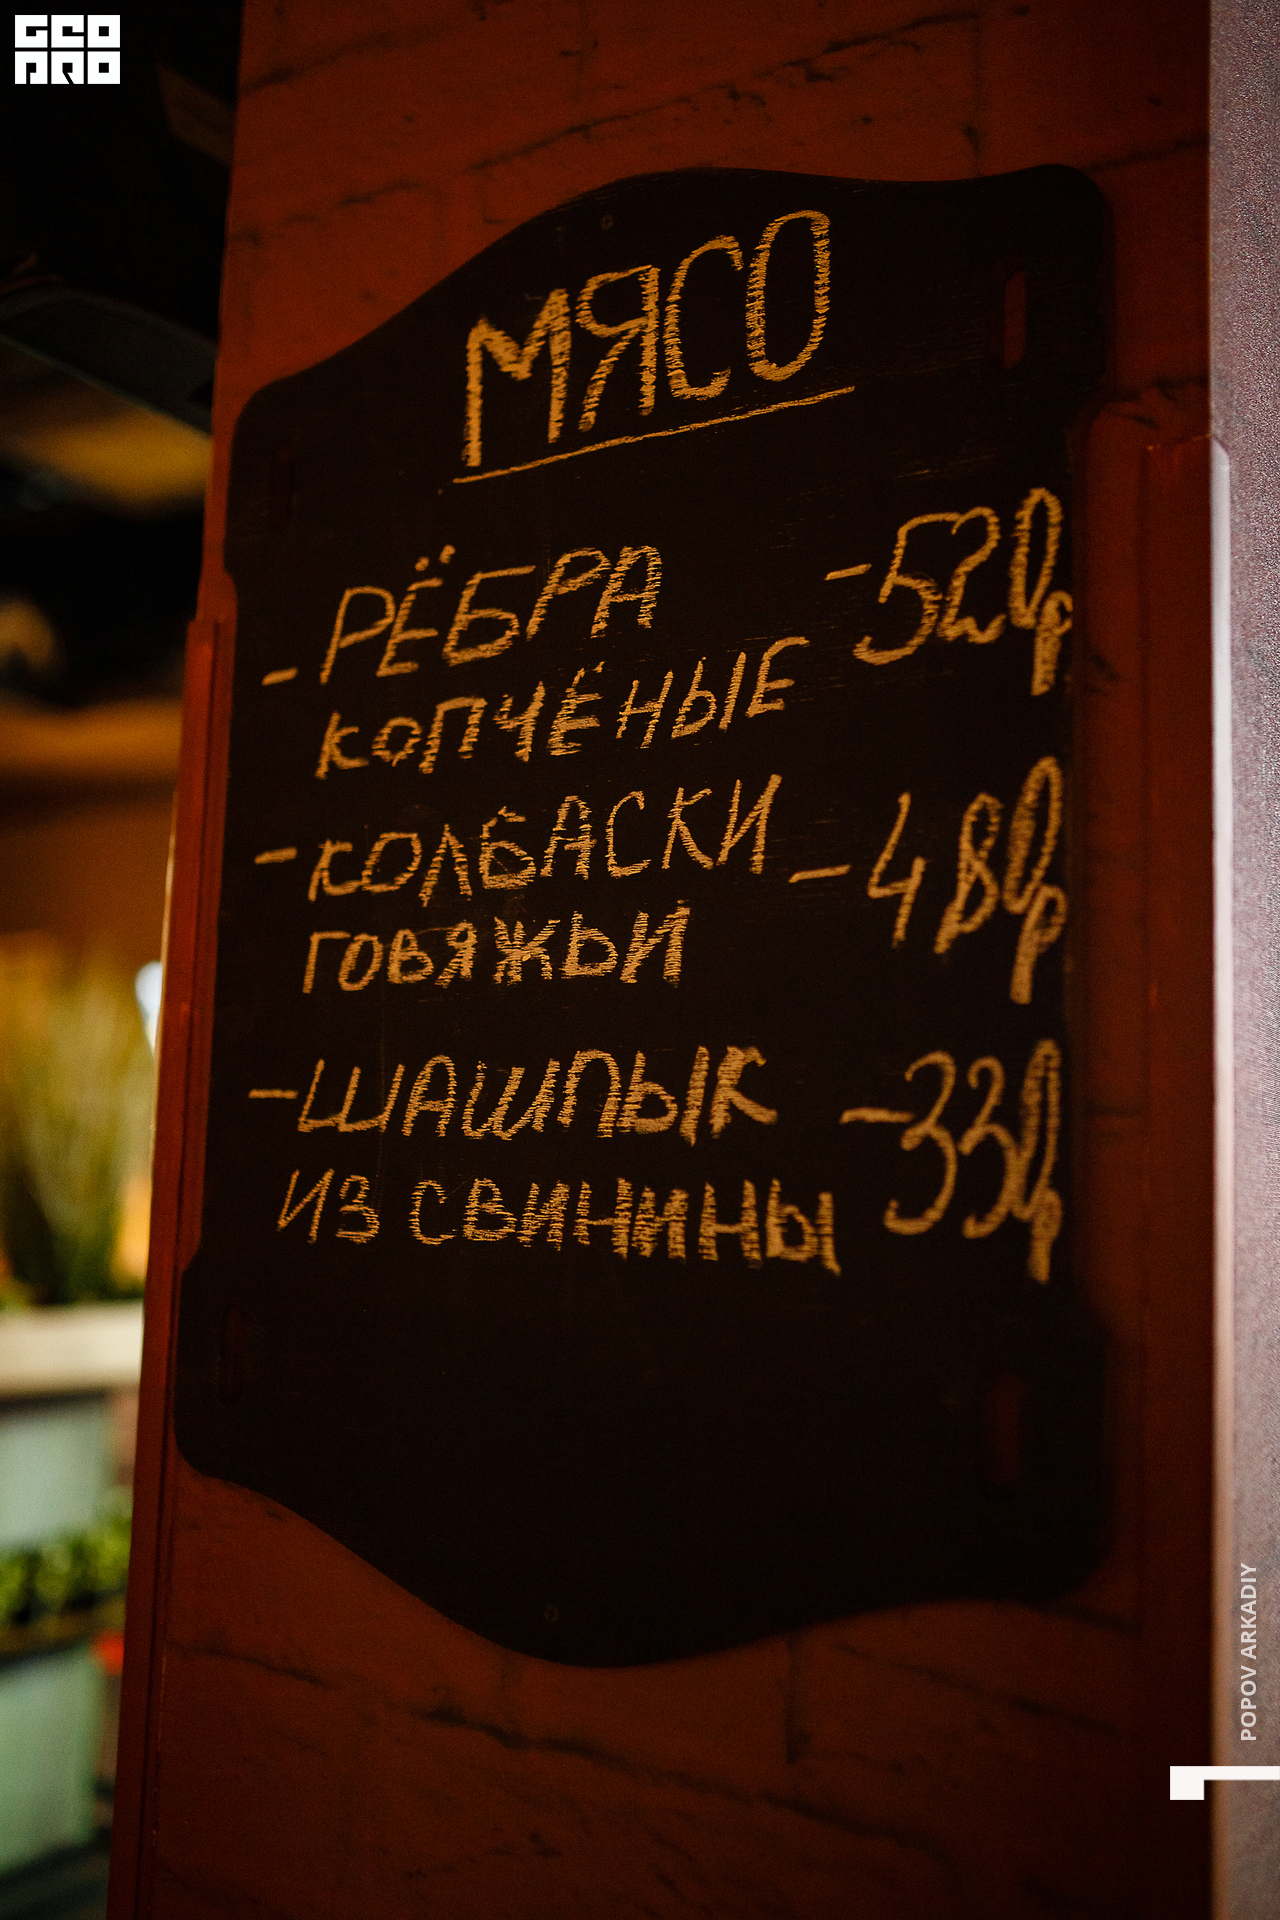 GEO
PRO
МЯСО
- РЁБРА - 520р
КОПЧЁНЫЕ
- КОЛБАСКИ - 480р
ГОВЯЖЬИ
- ШАШЛЫК - 330р
ИЗ СВИНИНЫ
POPOV ARKADIY